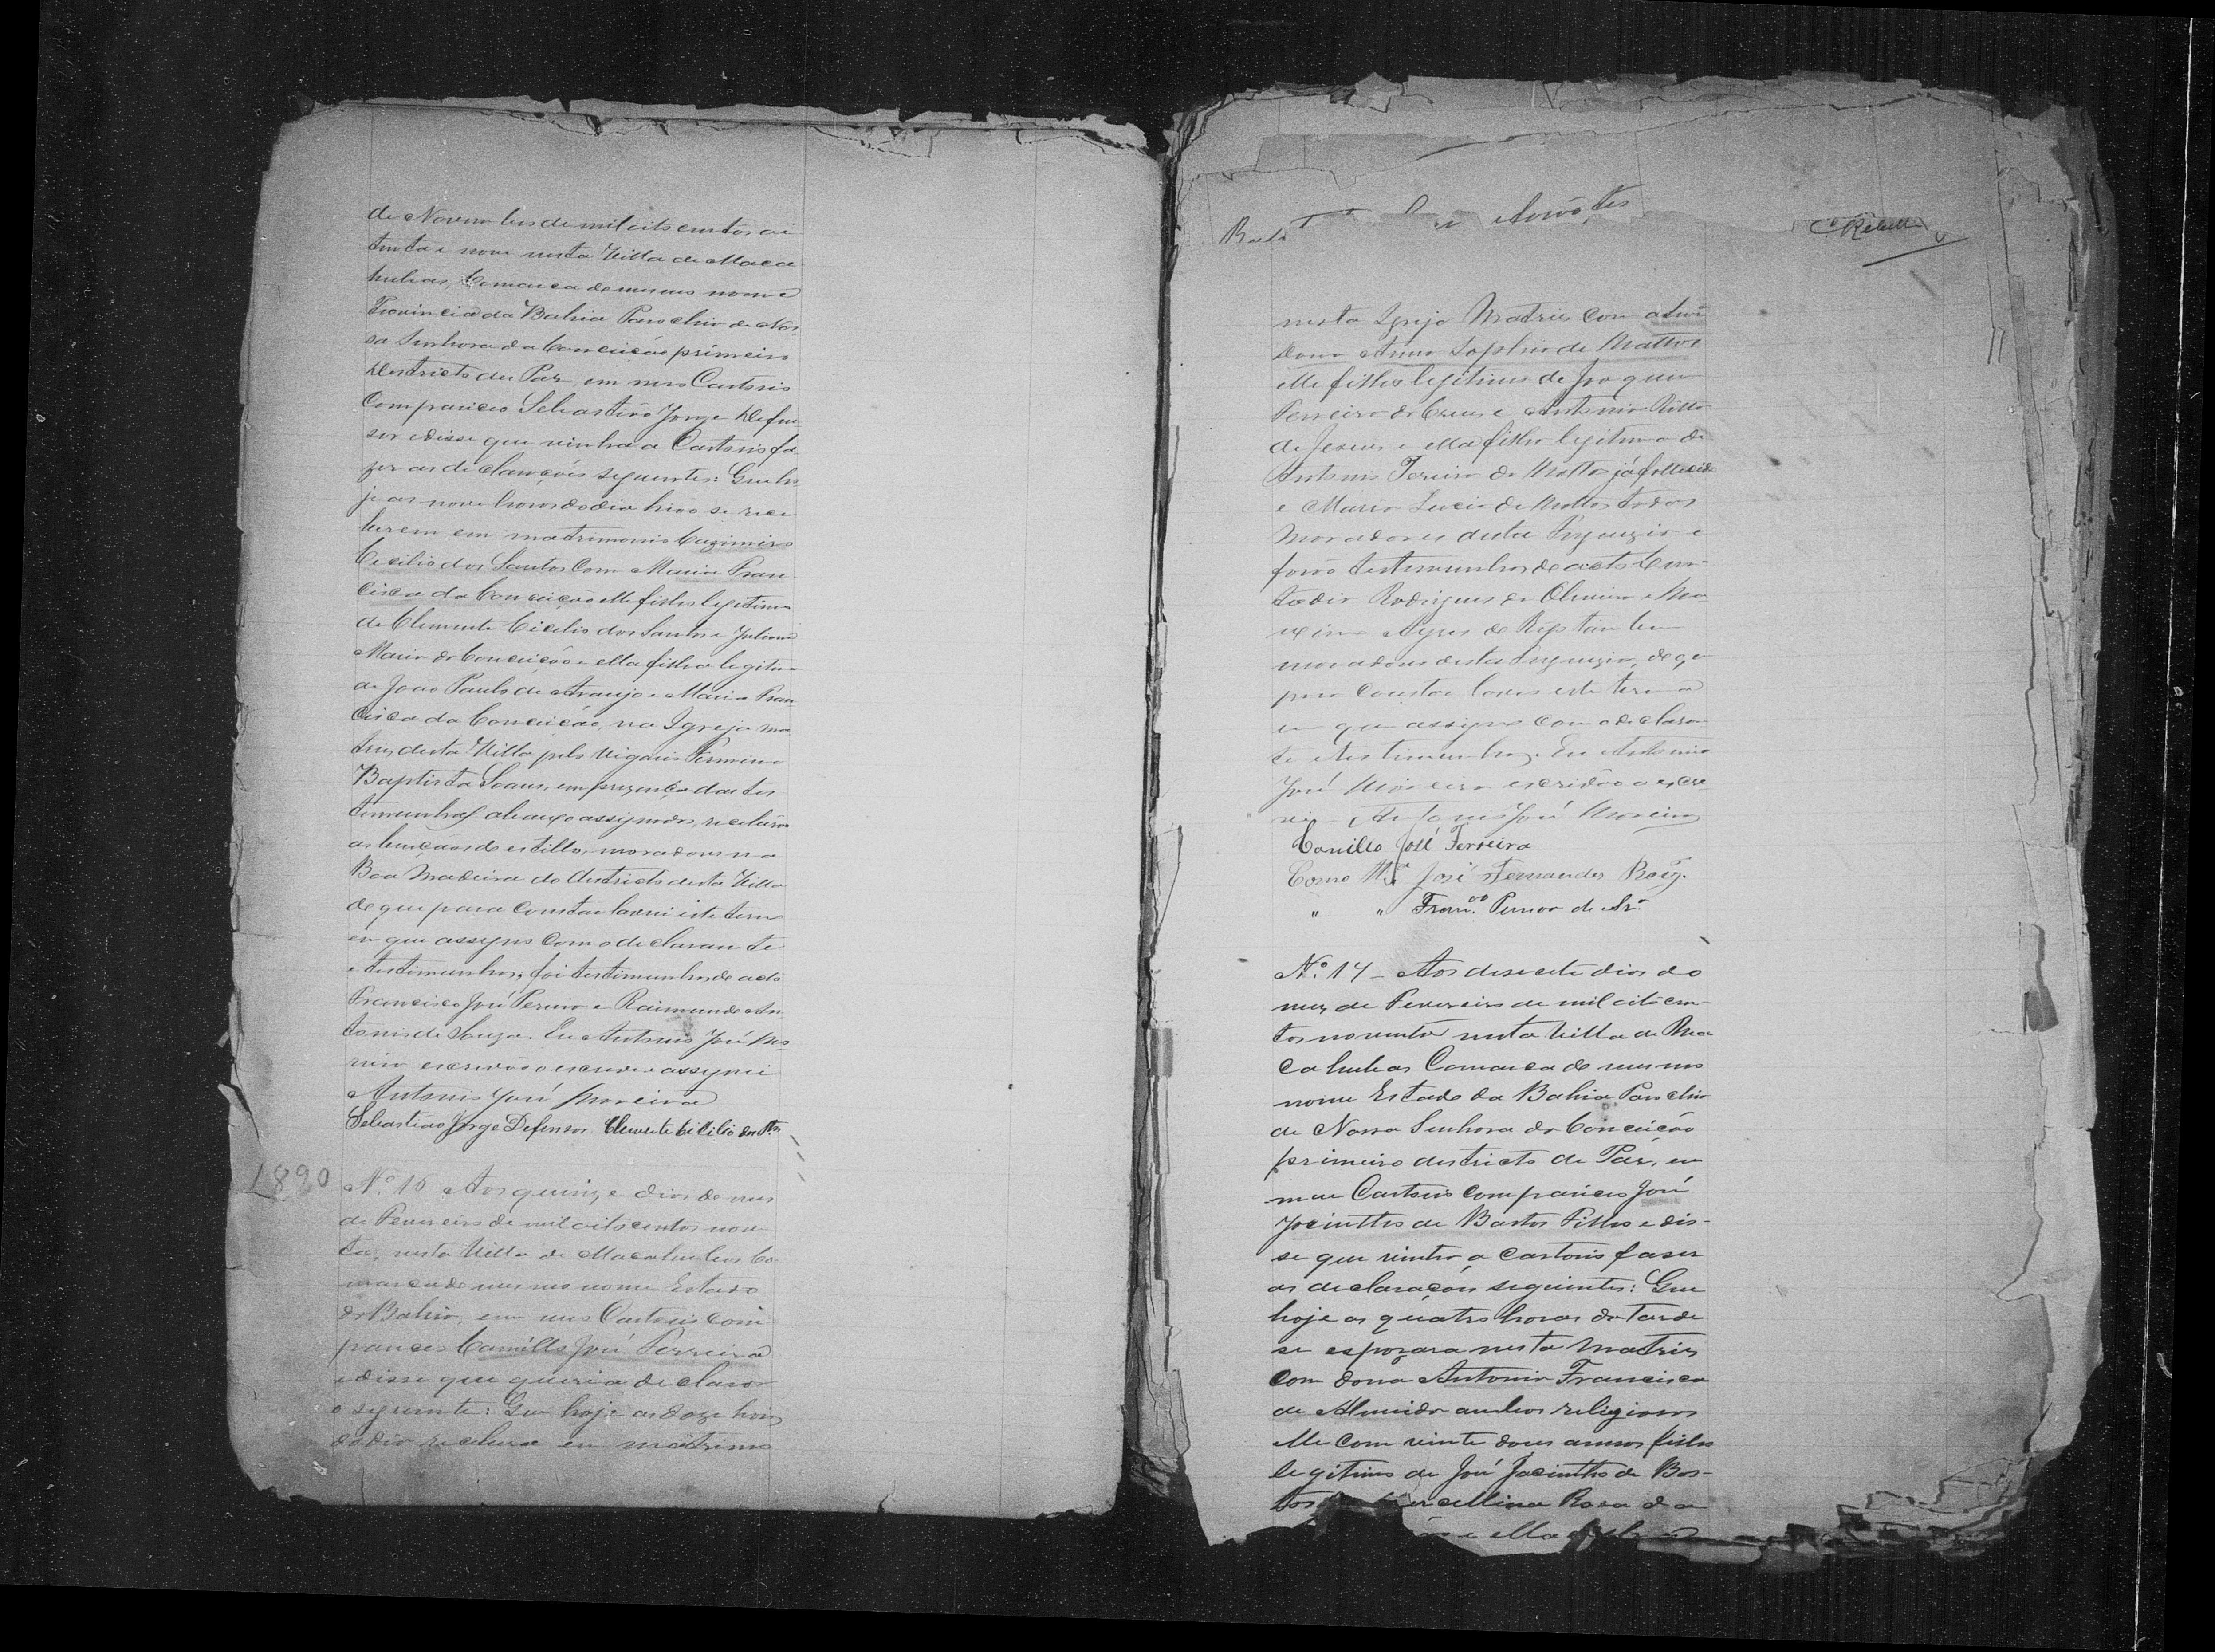 de Novembro de mil oito centos oi
tenta e nove nesta Villa de Maca
hubas, Comarca do mesmo nome
Provincia da Bahia Parochia de Nos
sa Senhora da Conceicão primeiro
destricto de Paz, em meo Cartorio
Compareceo Sebastião Jorge Defen
sor e disse que vinha a Cartorio fa
zer as declarações seguintes: Que ho
je as nove horas do dia hião se rece
berem em matrimonio Cazimiro
Cicilio dos Santos Com Maria Fran
cisca da Conceição elle filho legitimo
de Clemente Cicilio dos Santos e Juliana
Maria da Conceicão e ella filha legitima
de João Paulo de Araujo e Maria Fran
cisca da Conceicão, na Igreja ma
triz desta Villa pelo Vigario Firmino
Baptista Soares, em prezença das tes
temunhas abaixo assignados, receberão
as bençãos do estillo, moradores na
Boa Madeira do destricto desta Villa
de que para Constar lavrei este termo
em que assigno Com o declarante
e testimunhas; foi testimunhas do acto
Francisco José Pereira e Raimundo An
tonio de Souza. Eu Antonio José Mo
reira escrivão o escrevi e assignei
Antonio José Moreira
Sebastião Jorge Defensor Clemente Cicilio dos Stos
1890
Nº 16 Aos quinze dias do mes
de Fevereiro de mil oito centos noven
ta, nesta Villa de Macahubas Co
marca do mesmo nome Estado
da Bahia, em meo Cartorio com
pareceo Camillo José Ferreira
e disse que queria declarar
o seguinte: Que hoje as doze horas
do dia recebera em matrimo
nesta Igreja Matriz Com
Dona Anna Sophia de Mattos
elle filho legitimo de Joaquim
Ferreira da Cruz e Antonia Ritta
de Jesus e ella filha legitima de
Antonio Pereira de Mattos já fallecido
e Maria Lucia de Mattos todos
moradores desta Freguezia e
forão testemunhas do acto
Rodrigues de Oliveira e Ma
ximo Ayres de tambem
moradores desta Freguezia, de q
para Constar lavrei este termo
em que assigno Com o declaran
te e testimunhas. Eu Antonio
José Moreira escrivão o escre
vi Antonio José Moreira
Camillo José Ferreira
Como José Fernandes
" " Franco.
Nº 17 - Aos desecete dias do
mez de Fevereiro de mil oitocen-
tos noventa nesta Villa de Ma
cahubas Comarca do mesmo
nome Estado da Bahia Parochia
de Nossa Senhora da Conceicão
primeiro destricto de Paz, em
meu Cartorio compareceo José
Jacintho de Bastos Filho e dis-
se que vinha a cartorio faser
as declaraçoes seguintes: Que
hoje as quatro horas da tarde
se espozara nesta Matriz
com dona Antonia Francisca
de Almeida ambos religiosos
elle com vinte dous annos filho
legitimo de José Jacintho de Bas-
tos Rosa da
e ella